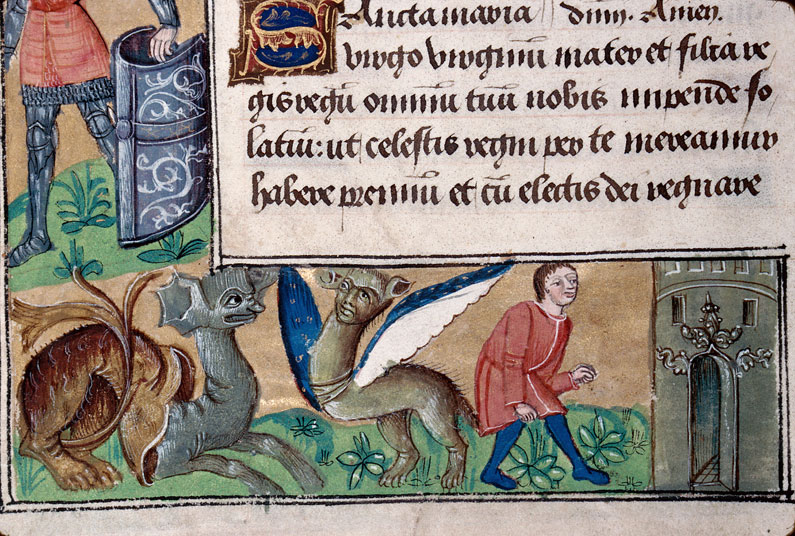 Sancta maria // dnn. Amen.
Virgo virginũ mater et filia re
gis regũ omniũ tuũ nobis impende so
latiũ: ut celestis regni per te mereamur
habere premiũ et cũ electis dei regnare